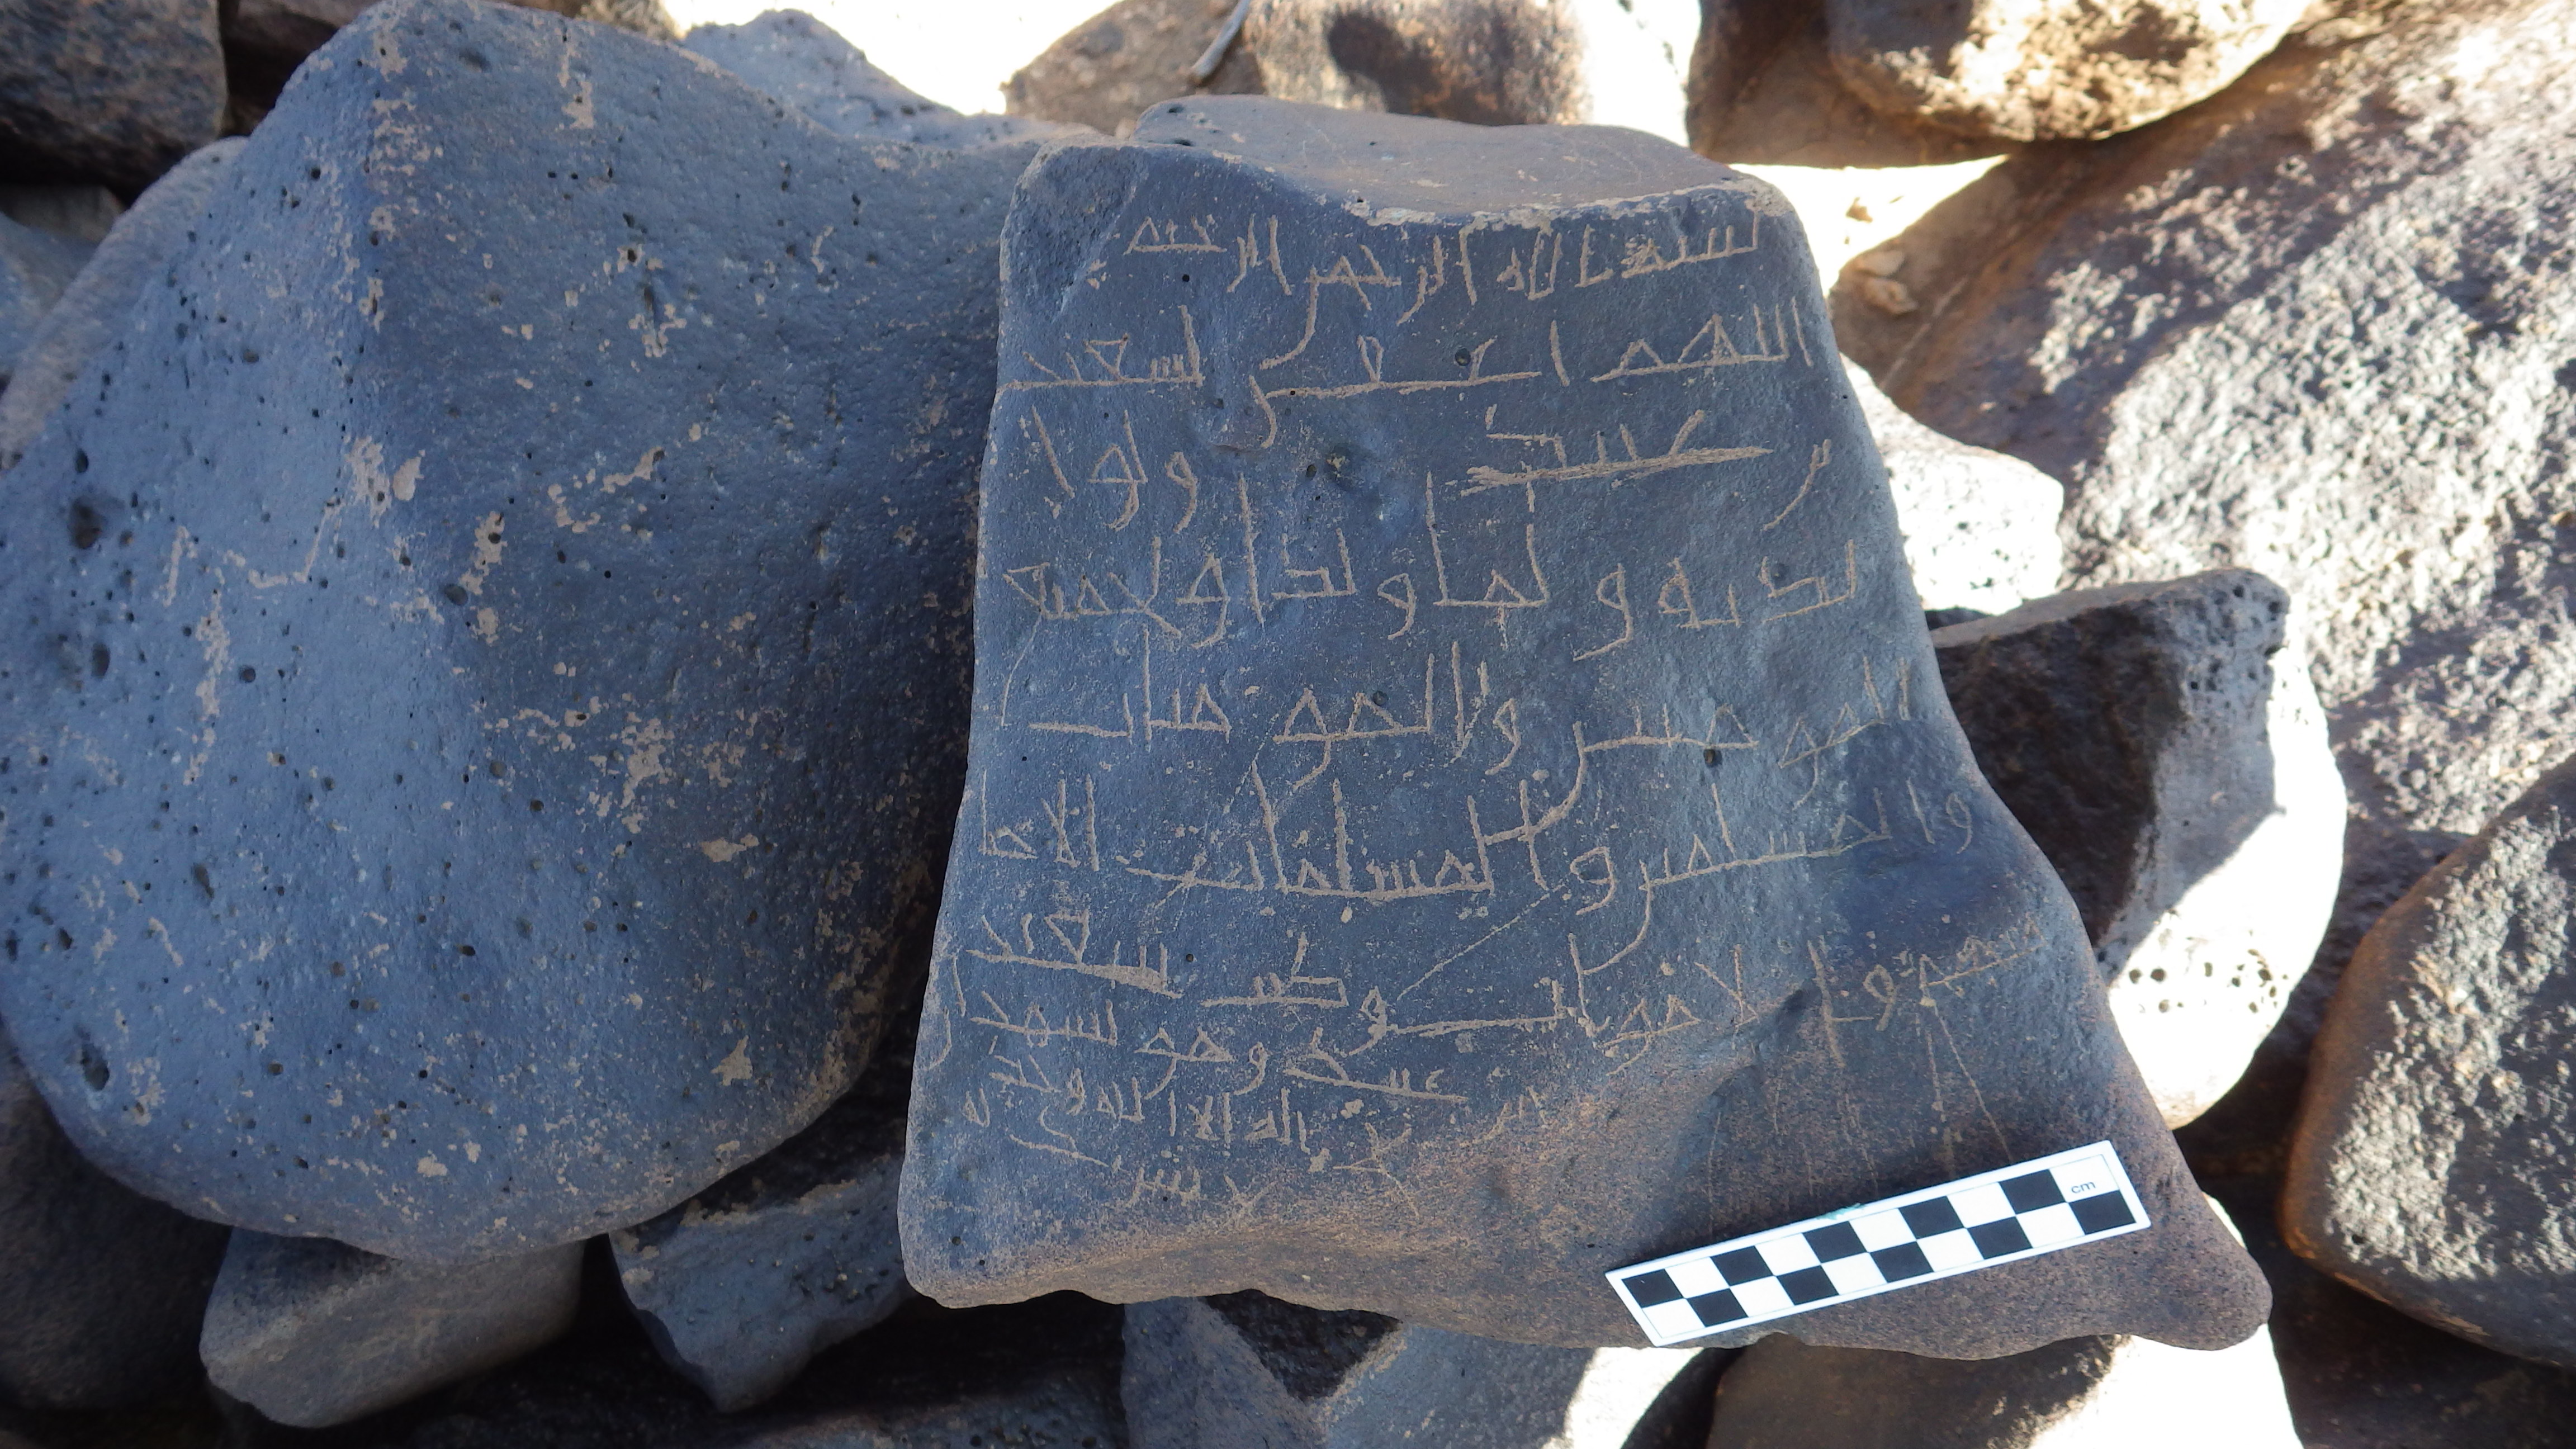 بسم الله الرحمن الرحيم
اللهم اغفر لسعيد
بن عبيد ولوا
لديه و لها ولدا ولجميع
المومنين والمومنات
والمسلمين والمسلمات الاحيا
منهم والاموات وكتب سعيد
بن عبيد وهو يشهد ا
لا اله الا الله وحده
لا شريك له